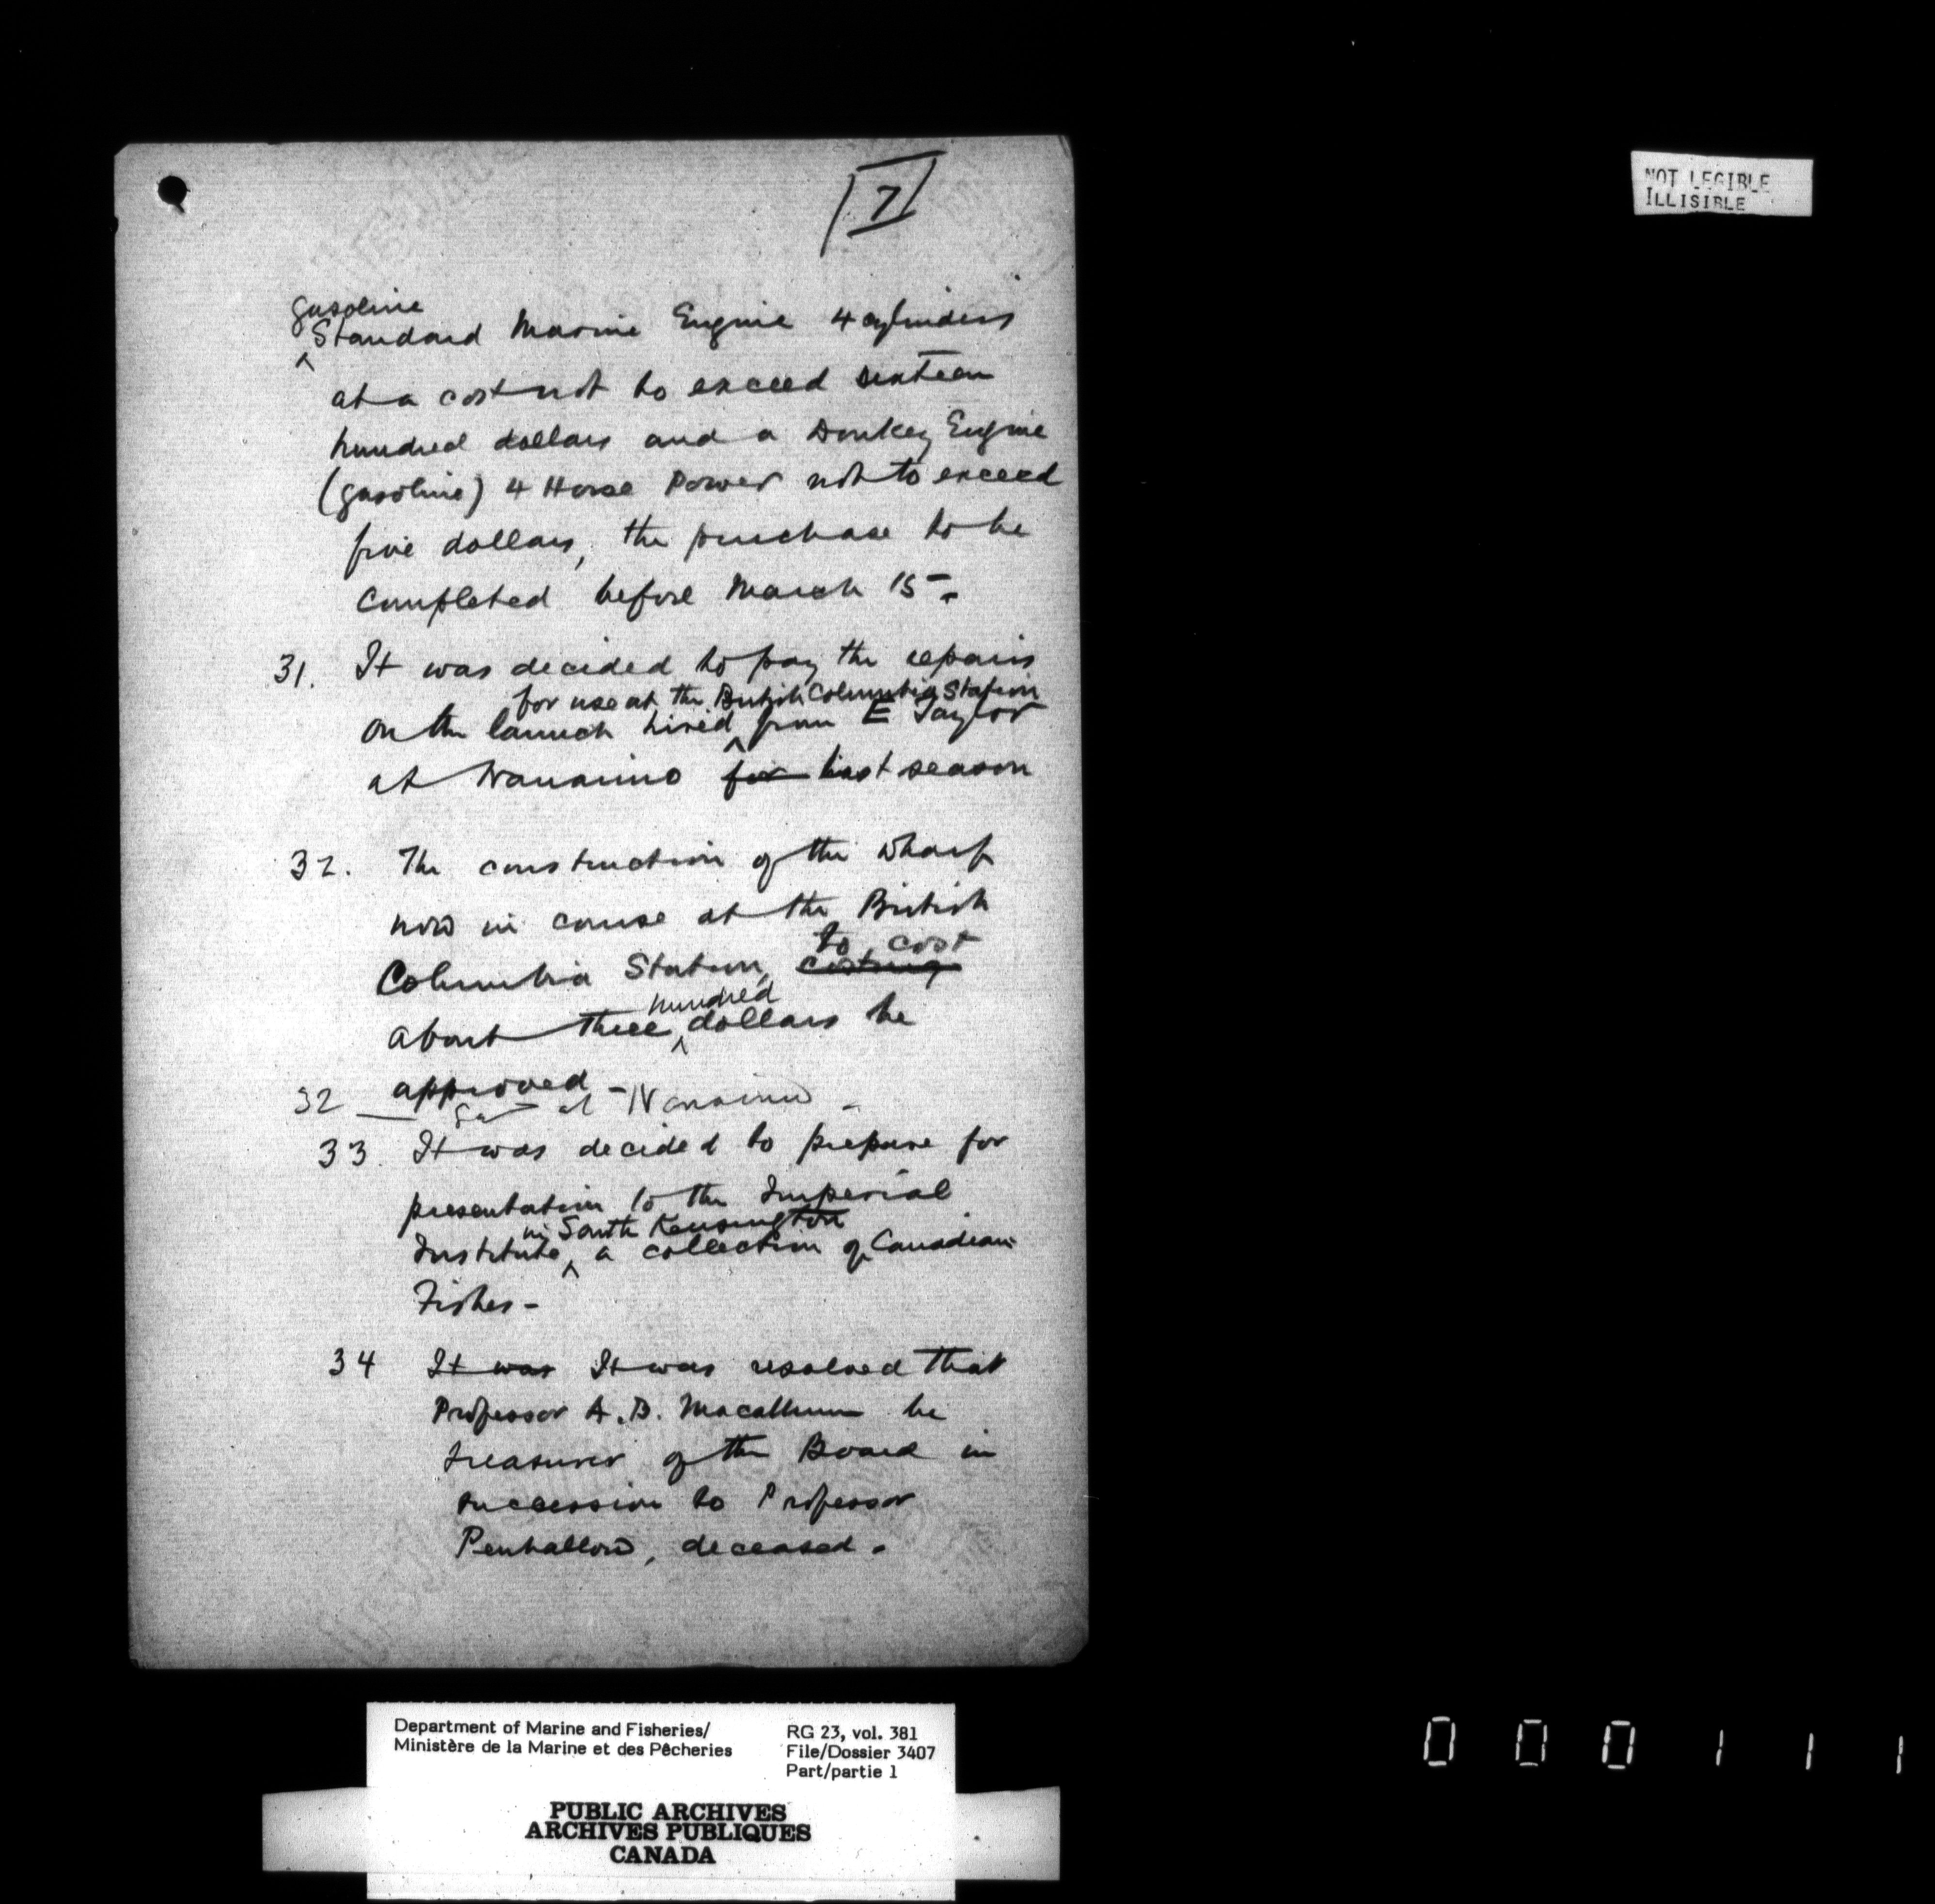 7
NOT LEGIBLE
ILLISIBLE
gasoline
Standard Marine Engine 4 cylinders
at a cost not to exceed sixteen
hundred dollars and a Donkey Engine
(gasoline) 4 Horse Power not to exceed
five dollars, the purchase to be
completed before March 15-.
31. It was decided to pay the repairs
for use at the British Columbia Station
on the launch hired ^ from E Taylor
at Nanaimo for last season
32. The construction of the wharf
now in course at the British
to cost
Columbia Station, costing
hundred
about three ^ dollars be
approved -
32 at Nanaimo -
33. It was decided to prepare for
presentation to the Imperial
in South Kensington
Institute ^ a collection of Canadian
Fishes -
34 It was It was resolved that
Professor A.B. Macallum be
treasurer of the Board in
succession to Professor
Penhallow, deceased.
Department of Marine and Fisheries/
Ministère de la Marine et des Pêcheries
RG 23, vol. 381
File/Dossier 3407
Part/partie 1
PUBLIC ARCHIVES
ARCHIVES PUBLIQUES
CANADA
000111